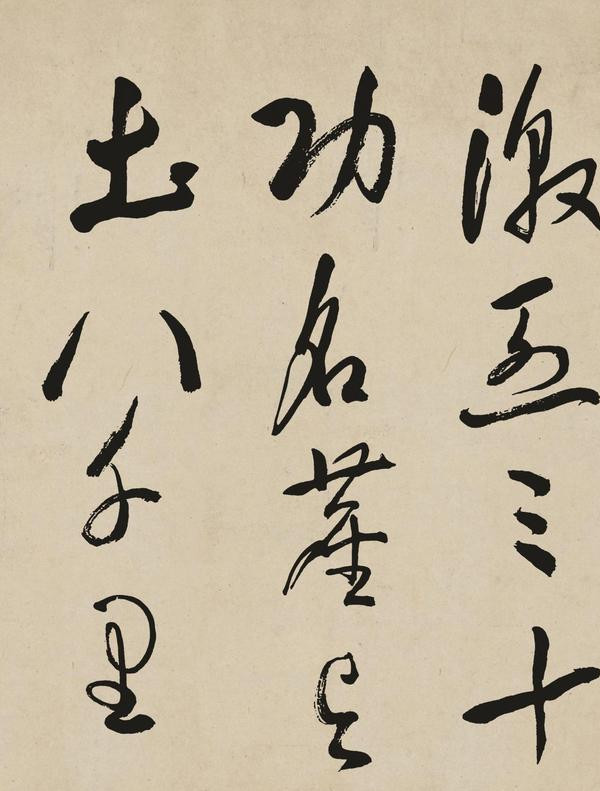 激烈三十
功名塵与
土八千里